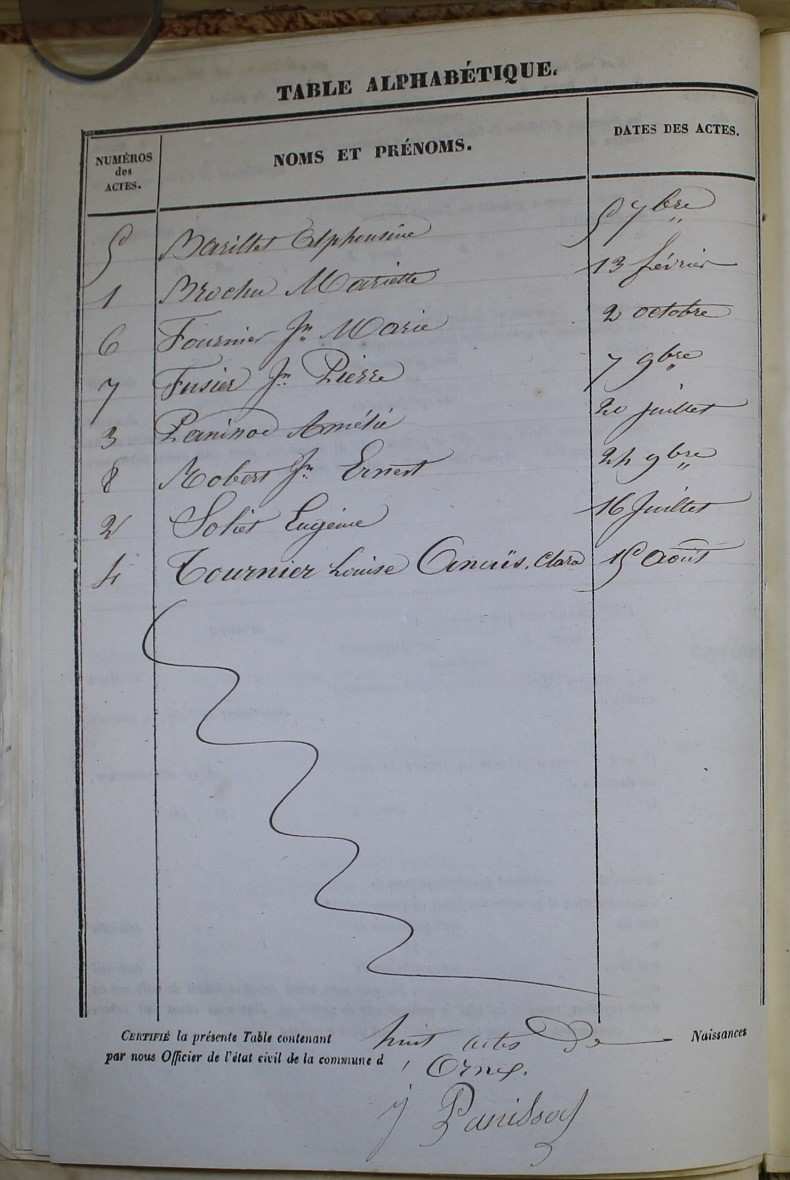 TABLE ALPHABÉTIQUE.
NUMÉROS des ACTES. NOMS ET PRÉNOMS. DATES DES ACTES.
5 Barillet Alphonsine 5 7bre
1 Brochu Mariette 13 février
6 Fournier Jh Marie 2 octobre
7 Fusier Jh Pierre 7 9bre
3 Panissod Amélie 20 juillet
8 Robert Jh Ernest 24 9bre
2 Soliet Eugénie 16 Juillet
4 Tournier Louise Anaïs. Clara 15 Août
CERTIFIÉ la présente Table contenant huit actes de Naissances
par nous Officier de l'état civil de la commune d'Ornex.
J Panissod